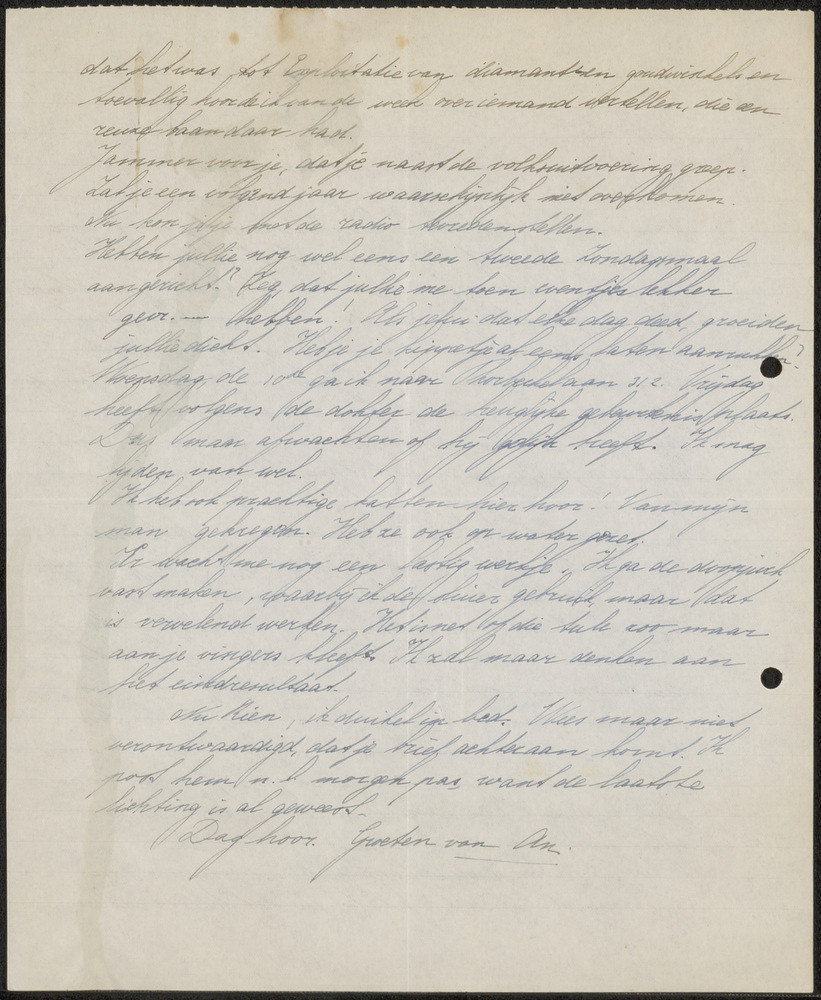 dat het was tot Exploitatie van diamant en goudwinkels en
toevallig hoorde ik van de week over iemand vertellen, die een
reuze baan daar had.
Jammer voor je, dat je naast de volksuitvoering greep.
Zal je een volgend jaar waarschijnlijk niet overkomen.
Nu kon je je met de radio tevreden stellen.
Hebben jullie nog wel eens een tweede Zondagsmaal
aangericht? Zeg, dat jullie me toen eventjes lekker
gevr. — hebben! Als je dat elke dag deed, groeiden
jullie dicht. Heb je je kippetje al eens laten aanvullen?
Woensdag de 10de ga ik naar 312. Vrijdag
heeft volgens de dokter de heuglijke gebeurtenis plaats.
Dus maar afwachten of hij gelijk heeft. Ik mag
lijden van wel.
Ik heb ook prachtige katten hier hoor! Van mijn
man gekregen. Heb ze ook op water gezet.
Er wacht me nog een lastig werkje. Ik ga de doopjurk
vast maken, waarbij ik de gebruik, maar dat
is vervelend werken. Het is net of die tule zoo maar
aan je vingers kleeft. Ik zal maar denken aan
het eindresultaat.
Nu Rien, ik duikel in bed. Wees maar niet
verontwaardigd, dat je brief achteraan komt. Ik
post hem n.l. morgen pas want de laatste
lichting is al geweest.
Dag hoor. Groeten van An.